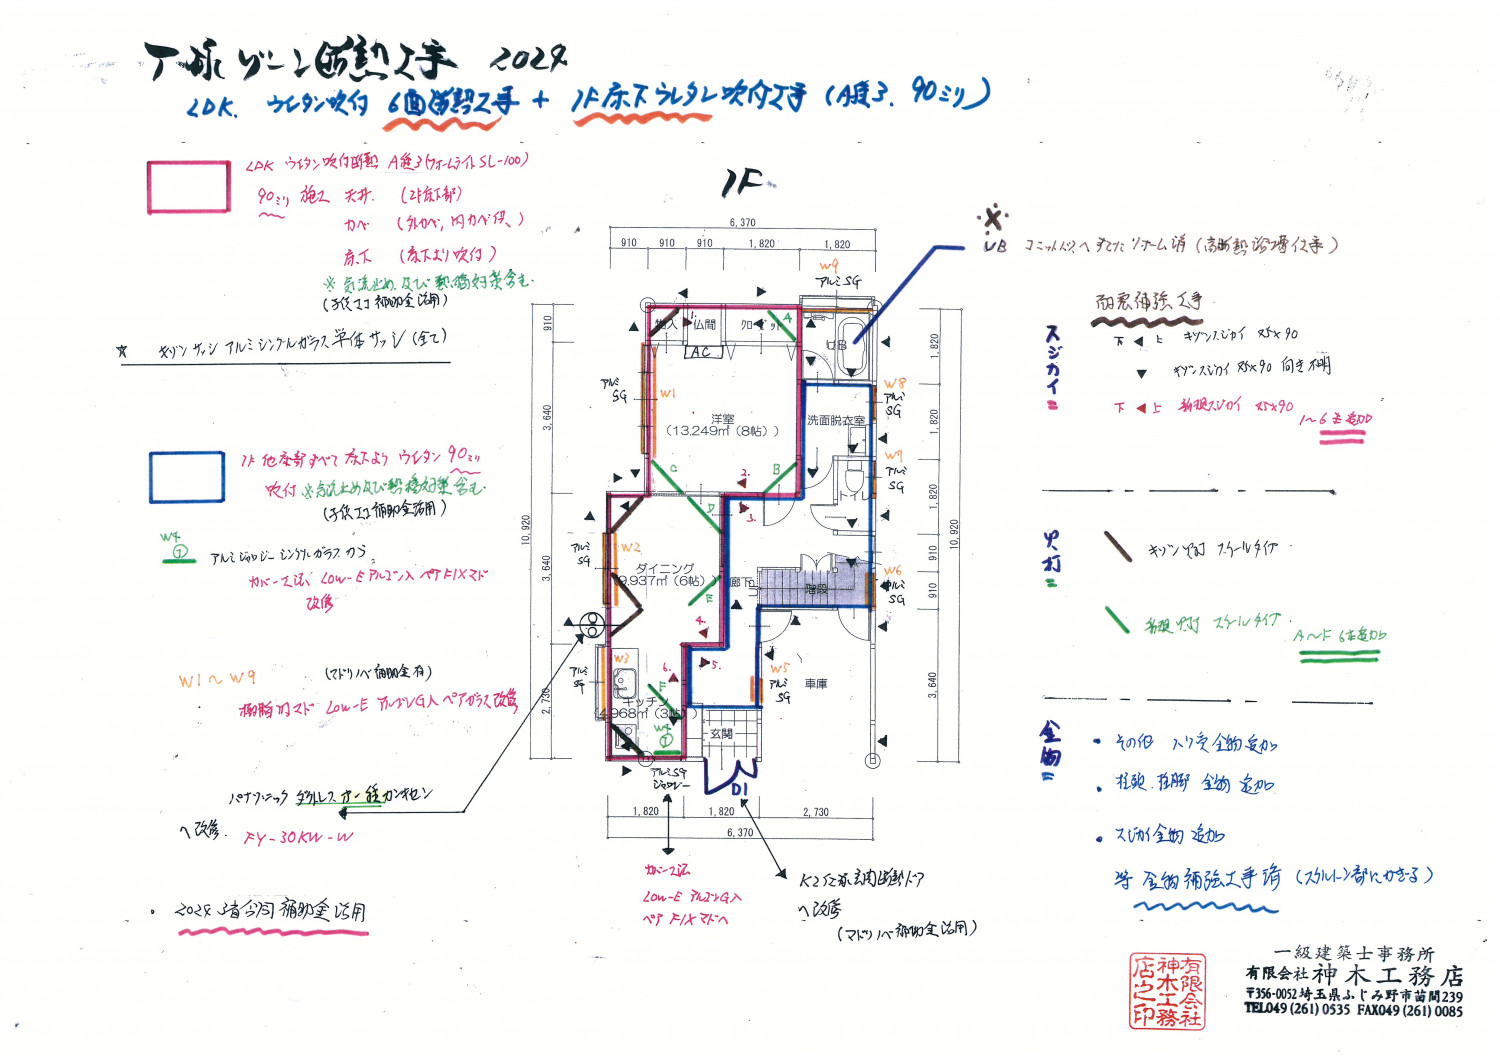 T様 ゾーン断熱工事 2024
LDK. ウレタン吹付 6面断熱工事 + 1F床下ウレタン吹付工事 (A種3. 90ミリ)
LDK ウレタン吹付断熱 A種3 (フォームライトSL-100)
90ミリ 施工 天井. (2F床下部)
カベ (外カベ, 内カベ共、)
床下 (床下より吹付)
※ 気流止め 及び 熱橋対策含む.
(子供エコ補助金活用)
★ キゾンサッシ アルミシングルガラス 単体サッシ (全て)
1F 他床部すべて 床下より ウレタン 90ミリ
吹付 ※気流止め及び熱橋対策含む.
(子供エコ補助金活用)
W4
アルミジャロジー シングルガラス から
カバー工法 Low-E アルゴン入 ペアFIXマド
改修
W1〜W9
(マドリノベ補助金有)
樹脂内マド Low-E アルゴンG入 ペアガラス改修
パナソニック ダクトレス 第一種カンキセン
へ改修.
FY-30KW-W
・2024 3省合同補助金活用
1F
6,370
910
910
910
1,820
1,820
W9
アルミSG
10,920
910
3,640
3,640
2,730
1,820
1,820
1,820
910
910
3,640
10,920
物入
仏間
クローゼット
UB
AC
1.
A
W1
アルミ
SG
洋室
(13.249㎡(8帖))
洗面脱衣室
W8
アルミ
SG
C
B
2.
3.
D
トイレ
W9
アルミ
SG
W2
アルミ
SG
ダイニング
9.937㎡(6帖)
E
4.
廊下
階段
W6
アルミ
SG
W3
アルミ
SG
6.
5.
F
キッチン
4.968㎡(3帖)
W4
W5
アルミ
SG
車庫
玄関
D1
アルミSG
ジャロジー
1,820
1,820
2,730
6,370
カバー工法
Low-E アルゴンG入
ペア FIXマドへ
K2仕様玄関断熱ドア
へ改修
(マドリノベ補助金活用)
※
UB ユニットバスへすでにリフォーム済 (高断熱浴槽仕様)
耐震補強工事
スジカイ
下 ◀ 上 キゾンスジカイ 45×90
▼ キゾンスジカイ 45×90 向き不明
下 ◀ 上 新規スジカイ 45×90
1〜6 追加
火打
キゾン火打 スチールタイプ
新規火打 スチールタイプ
A〜F 6追加
金物
・その他 入り受金物追加
・柱頭. 柱脚 金物 追加
・スジカイ金物 追加
等 金物補強工事済 (スケルトン部にかぎる)
有限会社
神木工務
店之印
一級建築士事務所
有限会社 神木工務店
〒356-0052 埼玉県ふじみ野市苗間239
TEL049(261)0535 FAX049(261)0085